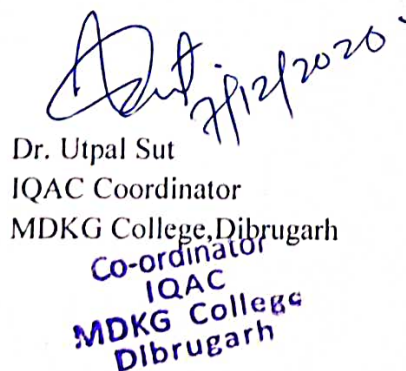 7/12/2020
Dr. Utpal Sut
IQAC Coordinator
MDKG College,Dibrugarh
Co-ordinator
IQAC
MDKG College
Dibrugarh